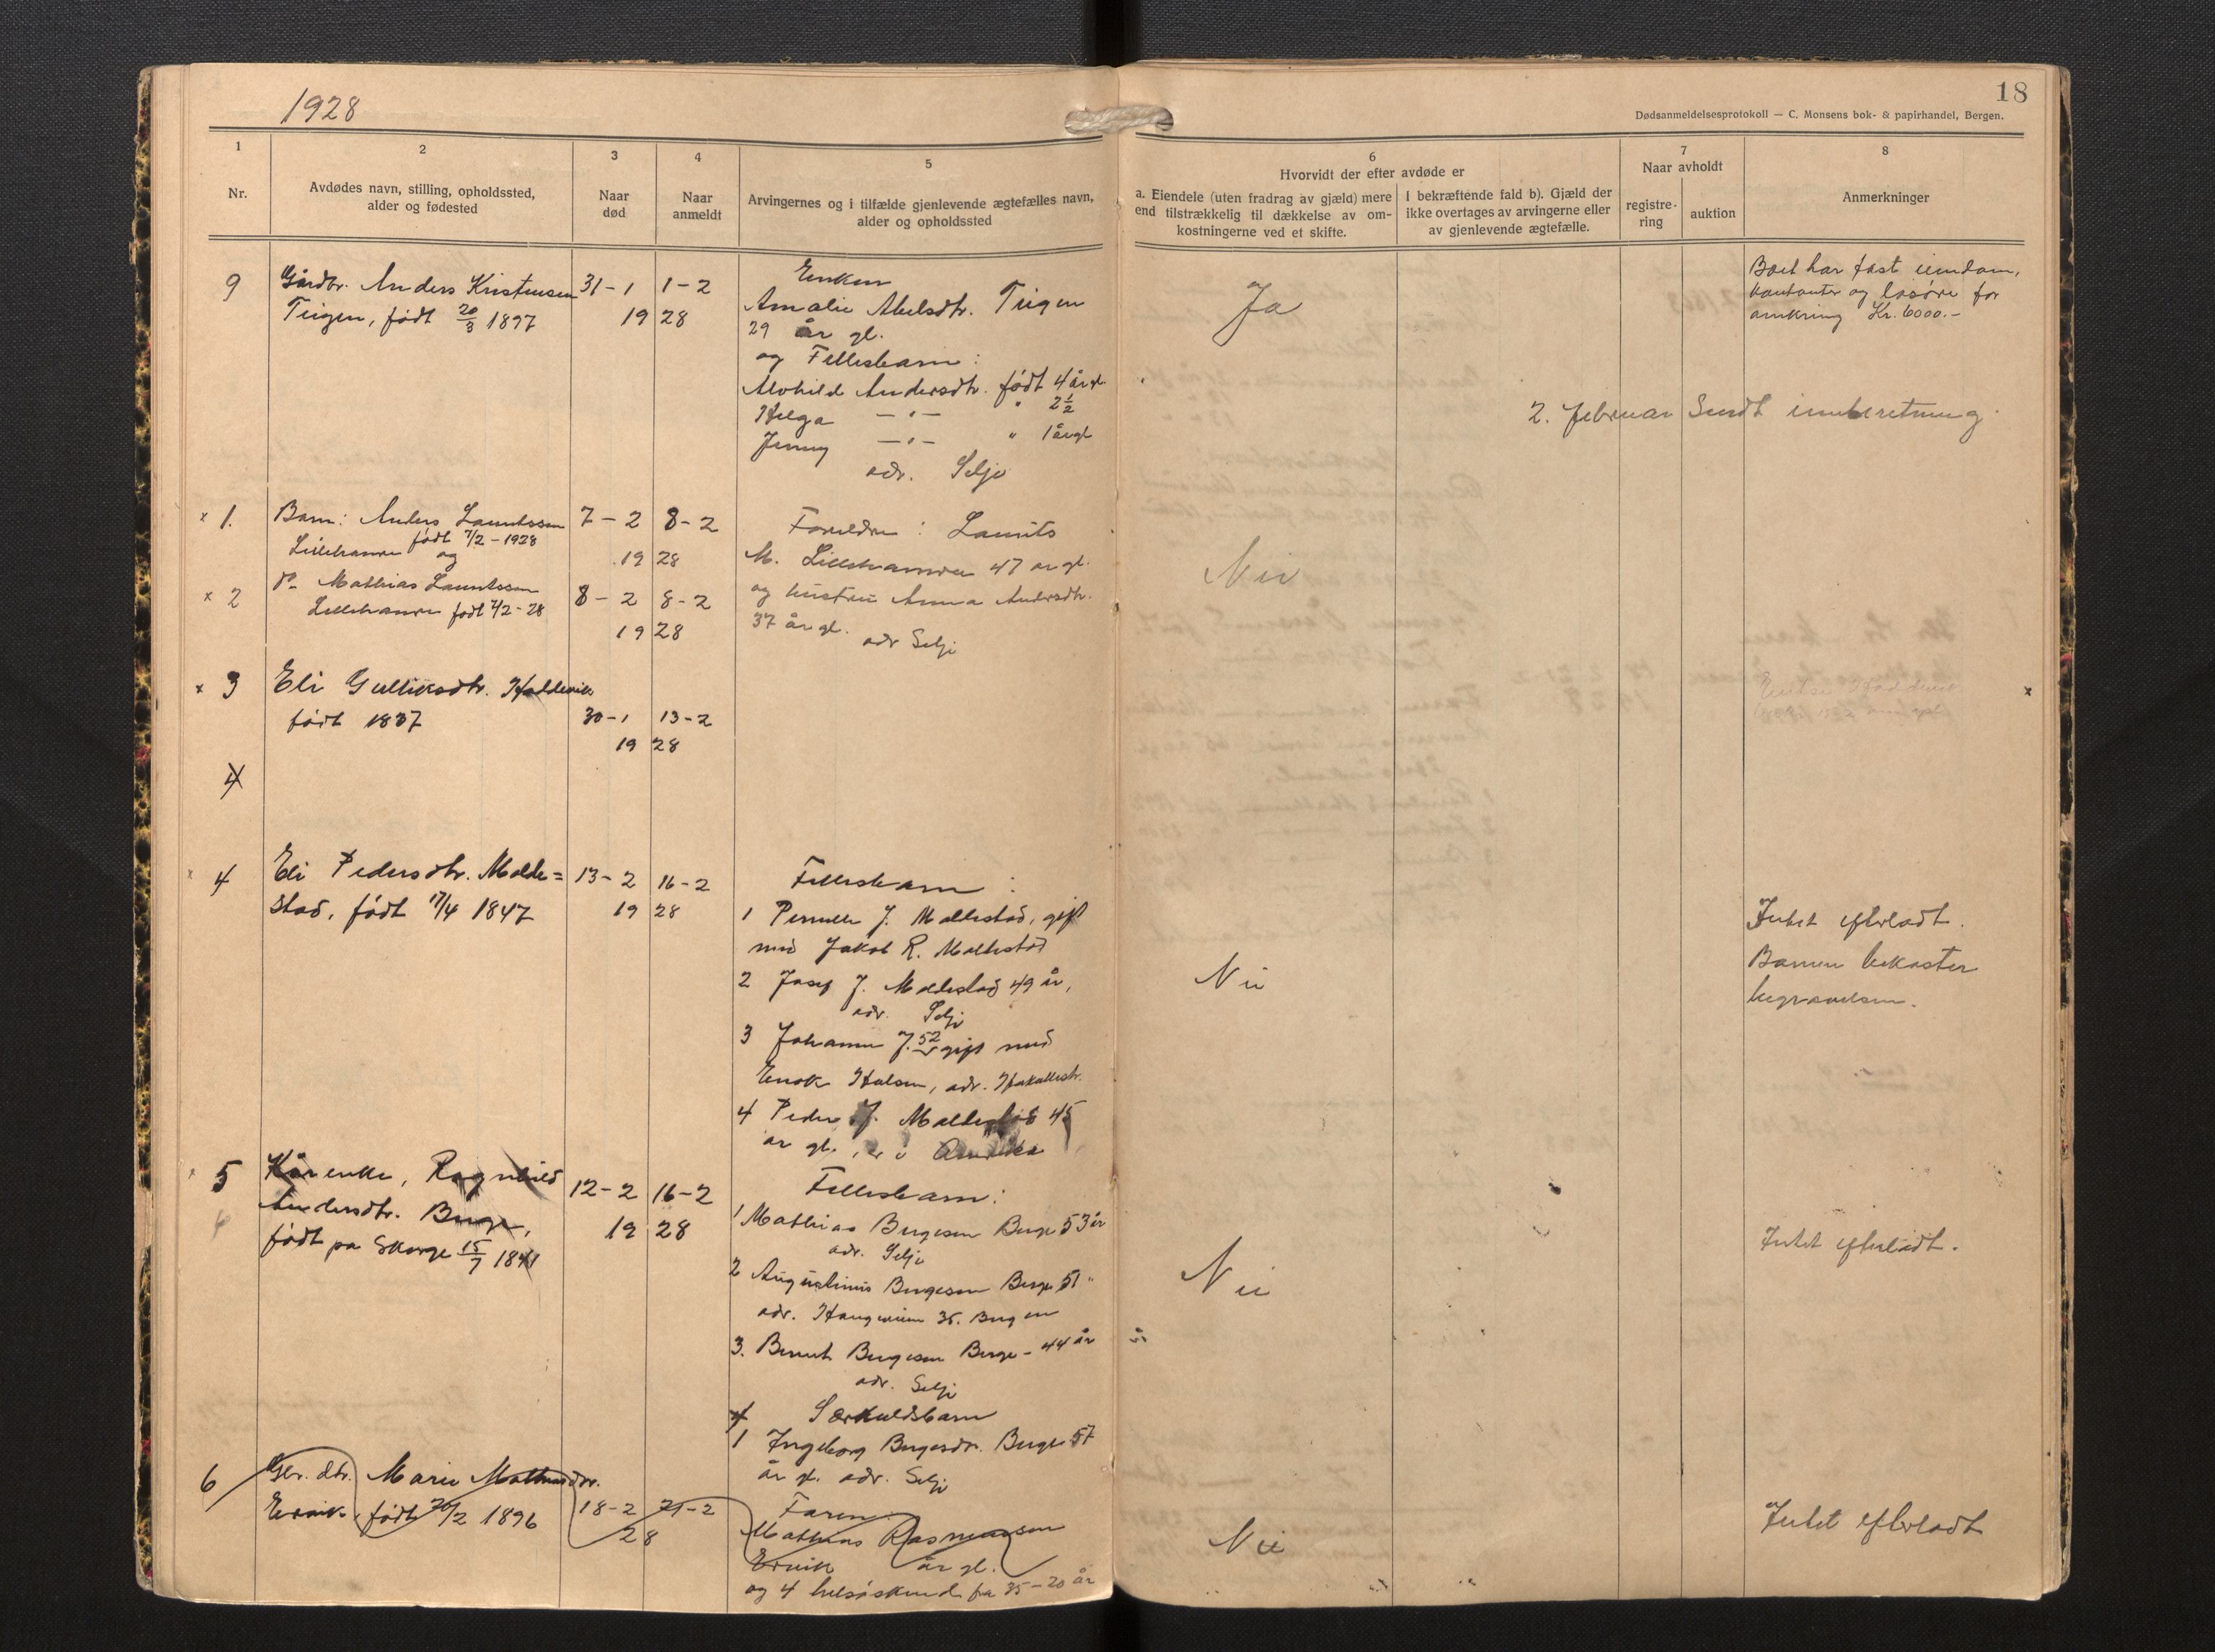 1928
18
Dødsanmeldelsesprotokoll — C. Monsens bok- & papirhandel, Bergen.
1
Nr.
2
Avdødes navn, stilling, opholdssted,
alder og fødested
3
Naar
død
4
Naar
anmeldt
5
Arvingernes og i tilfælde gjenlevende ægtefælles navn,
alder og opholdssted
6
Hvorvidt der efter avdøde er
a. Eiendele (uten fradrag av gjæld) mere
end tilstrækkelig til dækkelse av om-
kostningerne ved et skifte.
I bekræftende fald b). Gjæld der
ikke overtages av arvingerne eller
av gjenlevende ægtefælle.
7
Naar avholdt
registre-
ring
auktion
8
Anmerkninger
9
Gårdbr. Anders Kristensen
Teigen, født 20/3 1897
31-1 1-2
1928
Enken
Amalie Abelsdtr. Teigen
29 år gl.
og Fellesbarn:
Alvhild Andersdtr. født 4 år gl.
Helga —"— " 2½
Jenny —"— " 1 år gl
adr. Selje
Ja
Boet har fast eiendom,
kontanter og løsøre for
omkring Kr. 6000.-
2. februar Sendt innberetning.
x 1.
Barn: Anders Lauritssen
født 7/2-1928
Lillehamre og
7-2 8-2
1928
Foreldre: Laurits
M. Lillehamre 47 år gl.
og hustru Anna Andersdtr.
37 år gl.
adr Selje
Nei
x 2
do Mathias Lauritssen
Lillehamre født 7/2-28
8-2 8-2
1928
x 3
Eli Gulliksdtr. Hoddevik
født 1837
30-1 13-2
1928
x
4
x 4
Eli Pedersdtr. Molde=
stad, født 17/4 1847
13-2 16-2
1928
Fellesbarn:
1 Pernille J. Moldestad, gift
med Jakob R. Moldestad
2 Josef J. Moldestad 49 år,
adr. Selje
3 Johanne J. 52 gift med
Enok Halsen, adr.
4 Peder J. Moldestad 45
år gl., er i Amerika
Nei
Intet efterladt.
Barnen bekoster
begravelsen.
x 5
Kårenke, Ragnhild
Andersdtr. Berge,
født på Skorge 15/7 1841
12-2 16-2
1928
Fellesbarn:
1 Mathias Bergesen Berge 53 år
adr. Selje
2 Augustinus Bergesen Berge 51 "
adr. Haugeveien 35. Bergen
3. Bernt Bergesen Berge - 44 år
adr. Selje
4 Særkuldsbarn
1 Ingeborg Bergesdtr. Berge 57
år gl. adr. Selje
Nei
Intet efterladt.
6
Gbr. dtr. Marie Mathiasdtr.
Ervik, født 20/2 1896
18-2 21-2
28
Faren
Mathias Rasmussen
Ervik år gl.
og 4 helsøskend fra 35-20 år
Nei
Intet efterladt